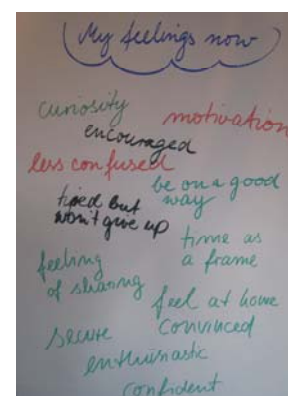 My feelings now
curiosity
motivation
encouraged
less confused
be on a good
way
tired but
won't give up
time as
a frame
feeling
of sharing
feel at home
secure
convinced
enthusiastic
confident